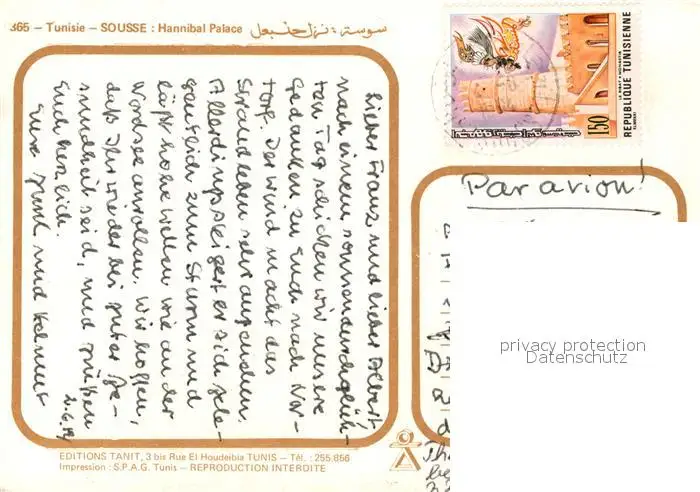 365 – Tunisie – SOUSSE : Hannibal Palace سوسة : نزل حنبعل
REPUBLIQUE TUNISIENNE
150
Par avion!
Lieber Franz und lieber Albert
nach einem sonnendurchglüh-
ten Tag schicken wir unsere
Gedanken zu Euch nach
Der Wind macht das
Strandleben sehr angenehm.
Allerdings steigert er sich gele-
gentlich zum Sturm und
läßt hohe Wellen wie an der
Nordsee anrollen. Wir hoffen,
daß Ihr wieder bei guter Ge-
sundheit seid, und grüßen
Euch herzlich.
Eure und Helmut
EDITIONS TANIT, 3 bis Rue El Houdeibia TUNIS – Tél. : 255.856
Impression : S.P.A.G. Tunis – REPRODUCTION INTERDITE
privacy protection
Datenschutz